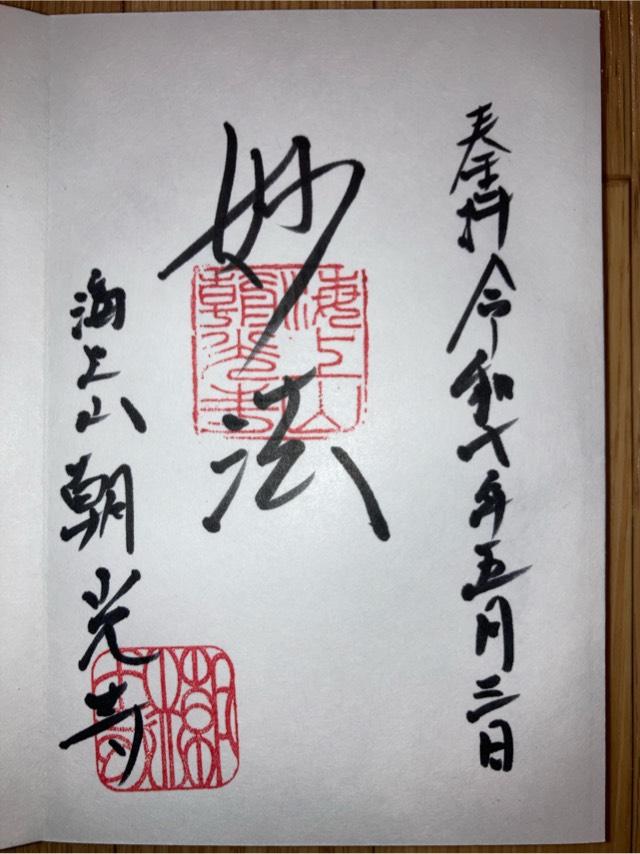 奉拝 令和七年五月三日
妙法
海上山
朝光寺
海上山 朝光寺